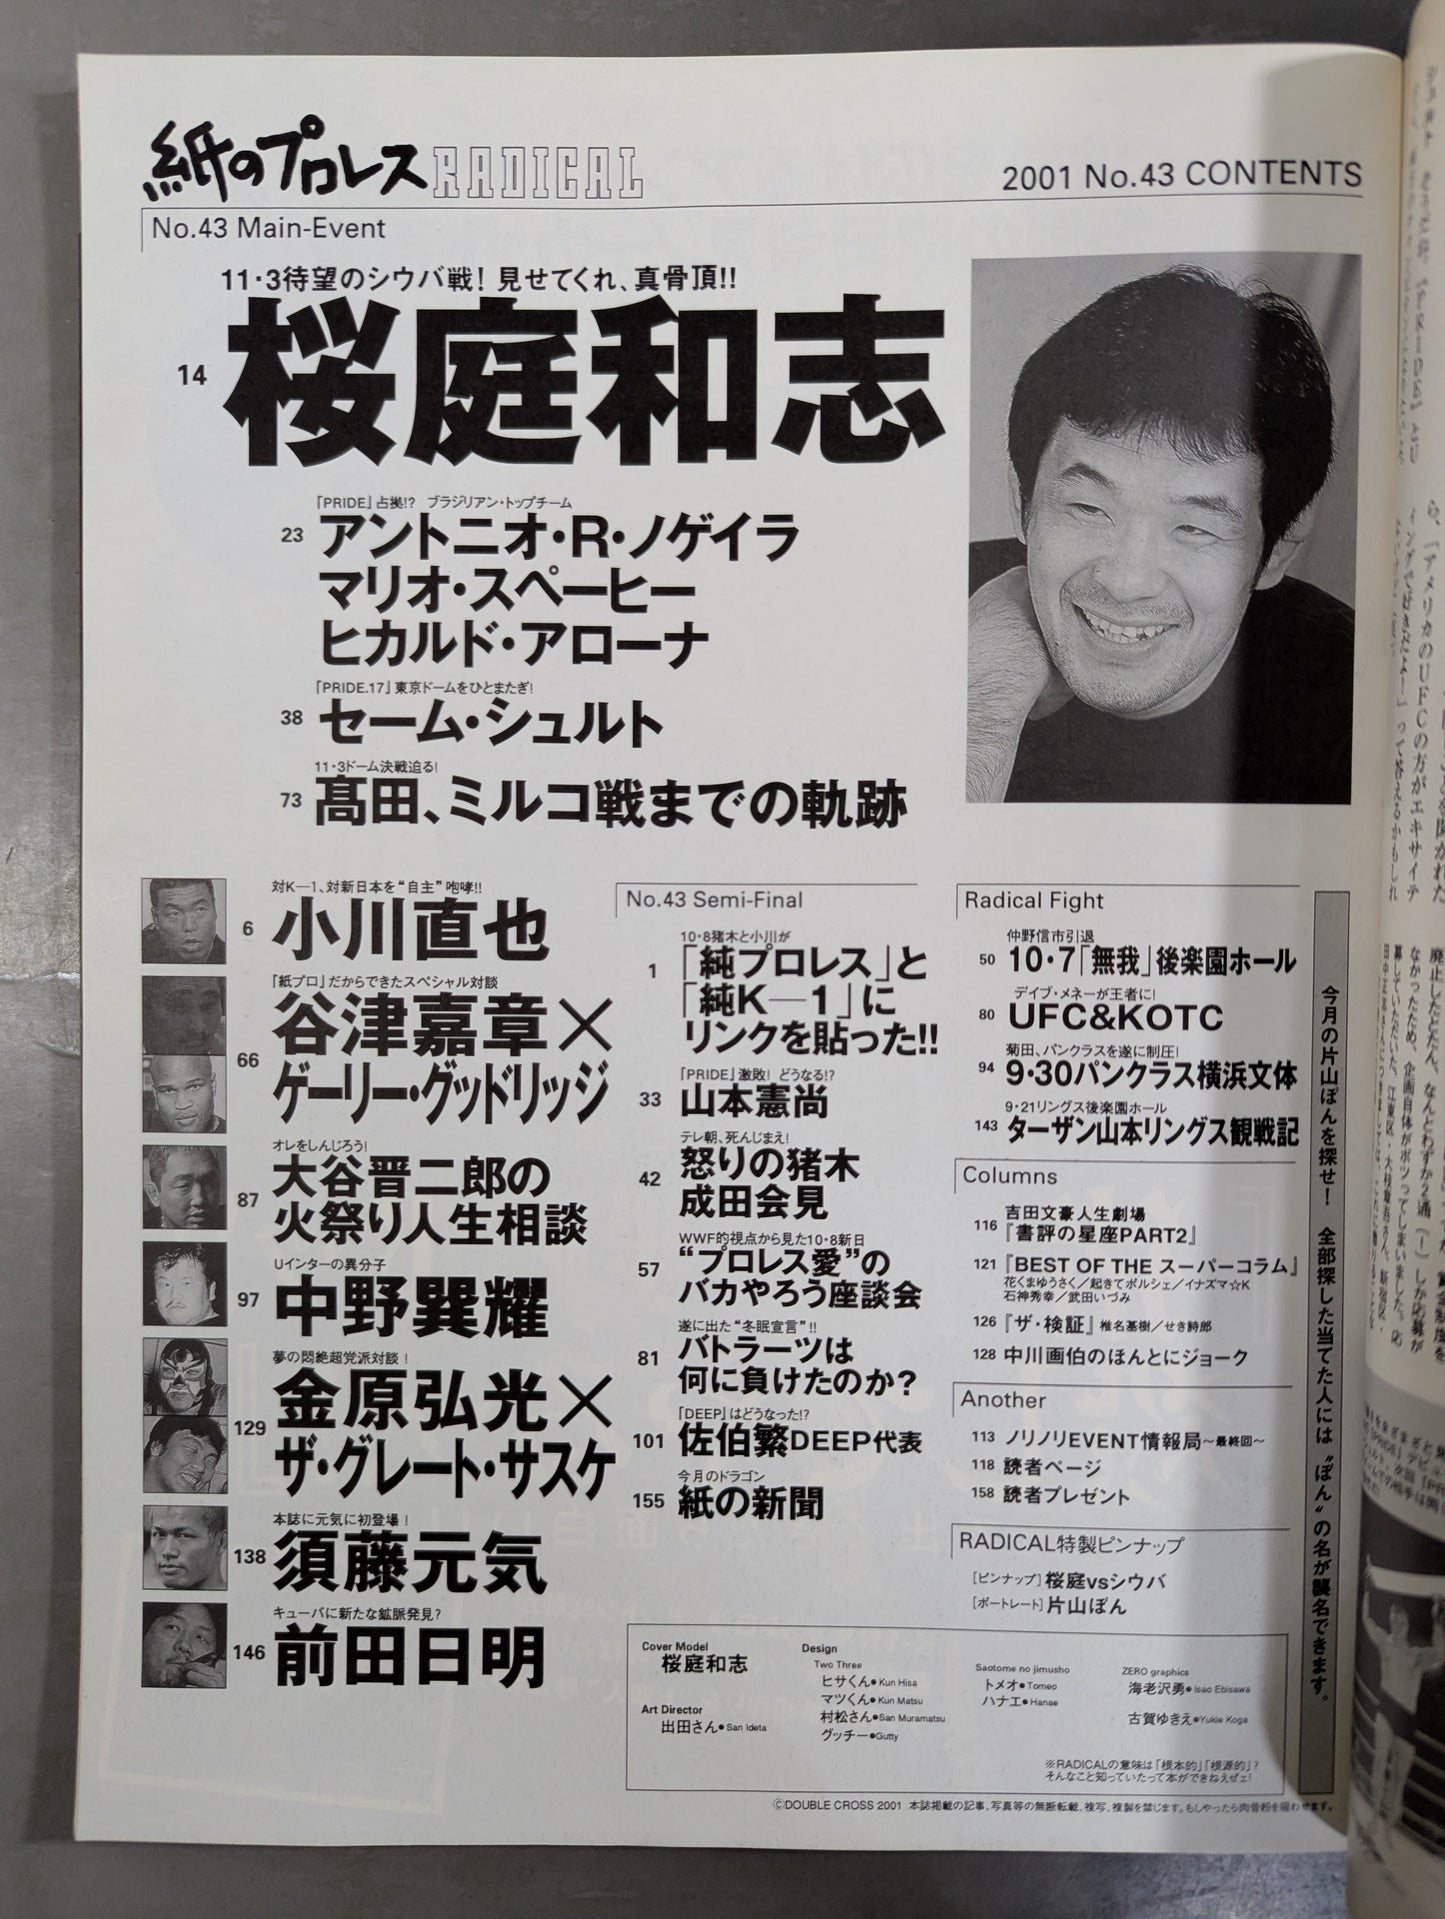 紙のプロレス RADICAL
2001 No.43 CONTENTS
No.43 Main-Event
11・3待望のシウバ戦! 見せてくれ、真骨頂!!
14 桜庭和志
『PRIDE』占拠!? ブラジリアン・トップチーム
23 アントニオ・R・ノゲイラ
マリオ・スペーヒー
ヒカルド・アローナ
『PRIDE.17』東京ドームをひとまたぎ!
38 セーム・シュルト
11・3ドーム決戦迫る!
73 髙田、ミルコ戦までの軌跡
対K―1、対新日本を“自主”咆哮!!
6 小川直也
『紙プロ』だからできたスペシャル対談
66 谷津嘉章×
ゲーリー・グッドリッジ
オレをしんじろう!
87 大谷晋二郎の
火祭り人生相談
Uインターの異分子
97 中野巽耀
夢の悶絶超党派対談!
129 金原弘光×
ザ・グレート・サスケ
本誌に元気に初登場!
138 須藤元気
キューバに新たな鉱脈発見?
146 前田日明
No.43 Semi-Final
10・8猪木と小川が
1 「純プロレス」と
「純K―1」に
リンクを貼った!!
『PRIDE』激敗! どうなる!?
33 山本憲尚
テレ朝、死んじまえ!
42 怒りの猪木
成田会見
WWF的視点から見た10・8新日
57 “プロレス愛”の
バカやろう座談会
遂に出た“冬眠宣言”!!
81 バトラーツは
何に負けたのか?
『DEEP』はどうなった!?
101 佐伯繁DEEP代表
今月のドラゴン
155 紙の新聞
Radical Fight
仲野信市引退
50 10・7「無我」後楽園ホール
デイブ・メネーが王者に!
80 UFC&KOTC
菊田、パンクラスを遂に制圧!
94 9・30パンクラス横浜文体
9・21リングス後楽園ホール
143 ターザン山本リングス観戦記
Columns
116 吉田文豪人生劇場
『書評の星座PART2』
121 『BEST OF THE スーパーコラム』
花くまゆうさく/起きてポルシェ/イナズマ☆K
石神秀幸/武田いづみ
126 『ザ・検証』椎名基樹/せき詩郎
128 中川画伯のほんとにジョーク
Another
113 ノリノリEVENT情報局～最終回～
118 読者ページ
158 読者プレゼント
RADICAL特製ピンナップ
[ピンナップ] 桜庭vsシウバ
[ポートレート] 片山ぽん
今月の片山ぽんを探せ! 全部探した当てた人には“ぽん”の名が襲名できます。
Cover Model
桜庭和志
Art Director
出田さん●San Ideta
Design
Two Three
ヒサくん●Kun Hisa
マツくん●Kun Matsu
村松さん●San Muramatsu
グッチー●Gutty
Saotome no jimusho
トメオ●Tomeo
ハナエ●Hanae
ZERO graphics
海老沢勇●Isao Ebisawa
古賀ゆきえ●Yukie Koga
※RADICALの意味は「根本的」「根源的」?
そんなこと知っていたって本ができねえぜェ!
©DOUBLE CROSS 2001 本誌掲載の記事、写真等の無断転載、複写、複製を禁じます。もしやったら肉骨粉を吸わせます。